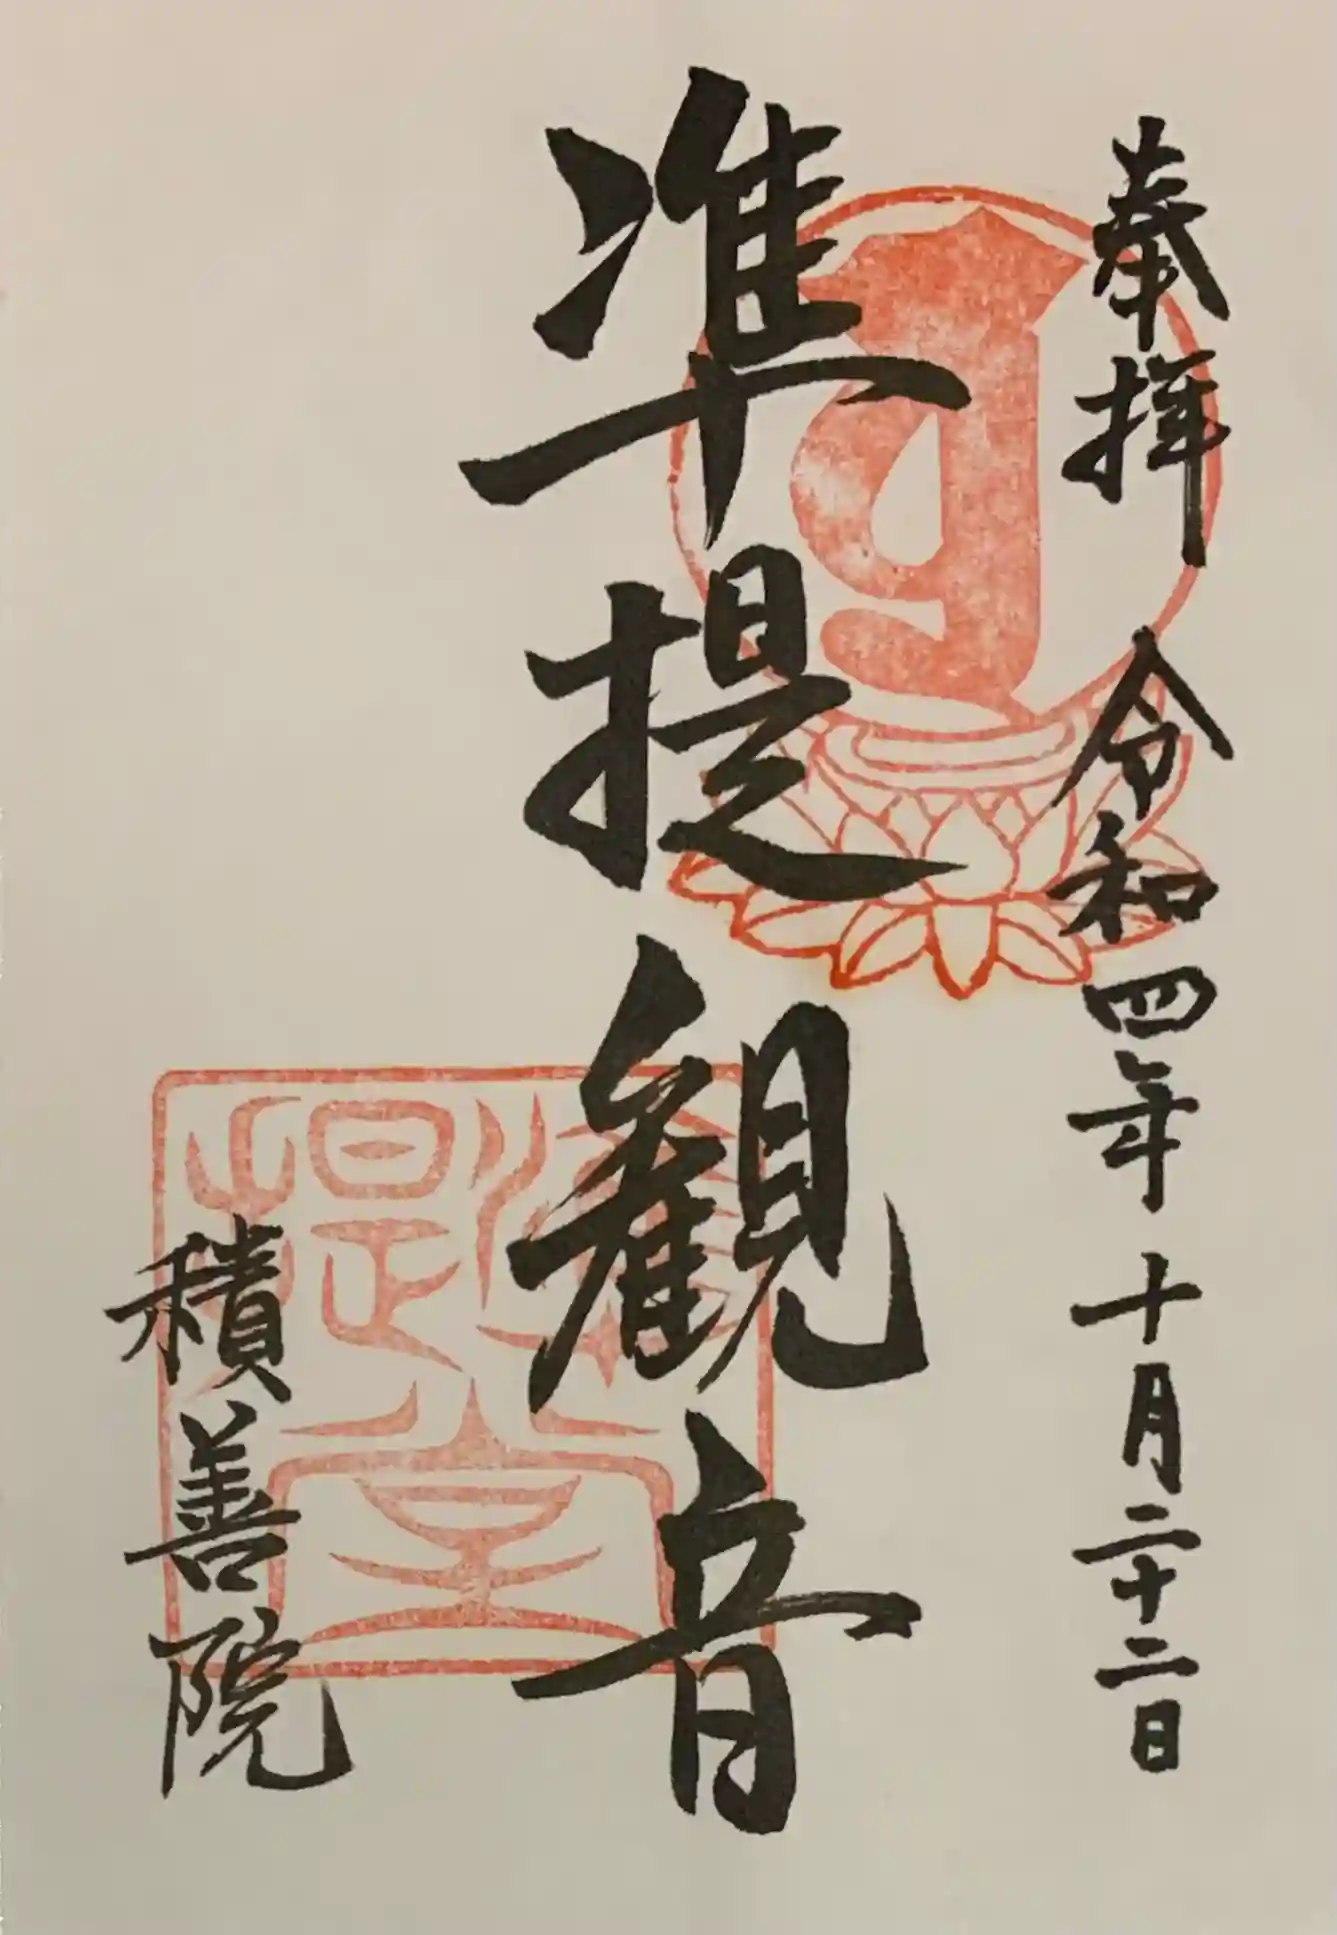 奉拝 令和四年 十月二十二日
準提観音
積善院
準提堂